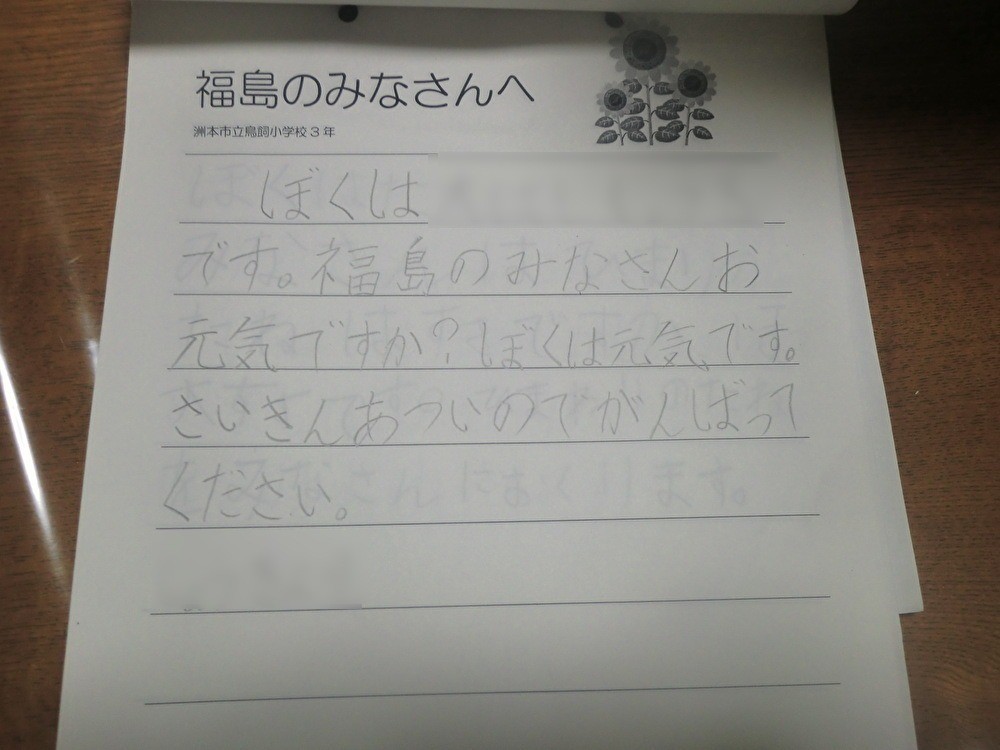 福島のみなさんへ
洲本市立鳥飼小学校3年
ぼくは
です。福島のみなさんお
元気ですか?ぼくは元気です。
さいきんあついのでがんばって
ください。